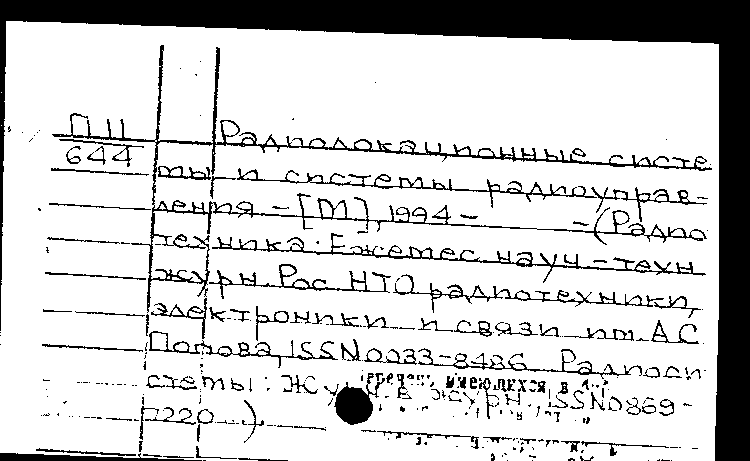 П 11
644
Радиолокационные систе
мы и системы радиоуправ-
ления - [М], 1994 - - (Радио
техника: Ежемес. науч.-техн
журн. Рос. НТО радиотехники,
электроники и связи им. А С
Попова, ISSN0033-8486 Радиоси
стемы: Журн. в журн. ISSN0869-
7220 ).
имеющихся в